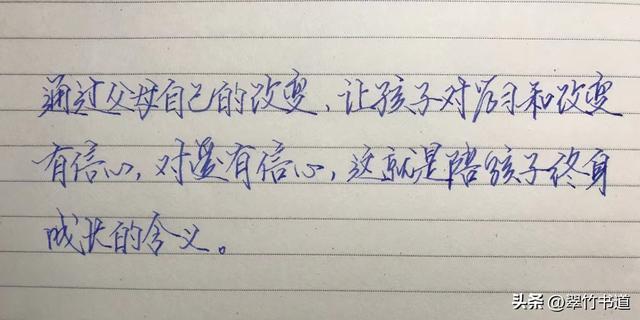 通过父母自己的改变、让孩子对学习和改变
有信心,对爱有信心,这就是陪孩子终身
成长的含义。
头条 @翠竹书道